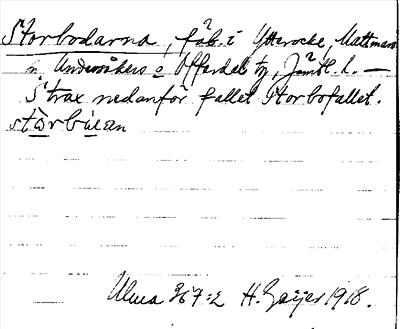 Storbodarna, fäb. i Ytterocke, Mattmars
s, Undersåkers o Offerdals tg, Jämtl. l. —
Strax nedanför fallet Storbofallet.
störbúan
Ulma 367:2 H. Geijer 1918.